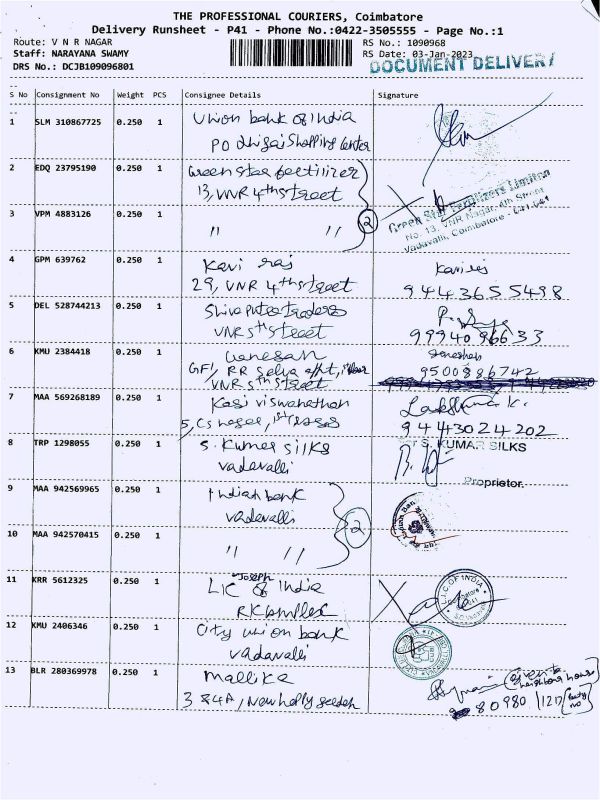 THE PROFESSIONAL COURIERS, Coimbatore
Delivery Runsheet - P41 - Phone No.:0422-3505555 - Page No.:1
Route: V N R NAGAR
RS No.: 1090968
Staff: NARAYANA SWAMY
RS Date: 03-Jan-2023
DRS No.: DCJB109096801
DOCUMENT DELIVERY
S No Consignment No Weight PCS Consignee Details Signature
1 SLM 310867725 0.250 1 Union bank of India
PO Shopping Center
2 EDQ 23795190 0.250 1 Green Star fertilizer
13, VNR 4th Street
Green Star Fertilizers Limited
No. 13, VNR Nagar, 4th Street
Vadavalli, Coimbatore - 641 041
3 VPM 4883126 0.250 1 " "
2
4 GPM 639762 0.250 1 Kavi raj
29, VNR 4th Street
9443655498
5 DEL 528744213 0.250 1 Shiva Traders
VNR 5th Street
9994096633
6 KMU 2384418 0.250 1 Ganesan
GF1, RR Selva Apt,
VNR 5th Street
Ganeshan
9500886742
7 MAA 569268189 0.250 1 Kasi Viswanathan
5, Cs nagar, 1st cross
K.
9443024202
8 TRP 1298055 0.250 1 S. Kumar silks
vadavalli
For S. KUMAR SILKS
Proprietor.
9 MAA 942569965 0.250 1 Indian bank
vadavalli
10 MAA 942570415 0.250 1 " "
2
11 KRR 5612325 0.250 1 Joseph
LIC of India
RK Complex
L.I.C. OF INDIA
12 KMU 2406346 0.250 1 City union bank
vadavalli
13 BLR 280369978 0.250 1 Mallika
3 & 4A, New holly garden
(given to
neighbour house)
80980